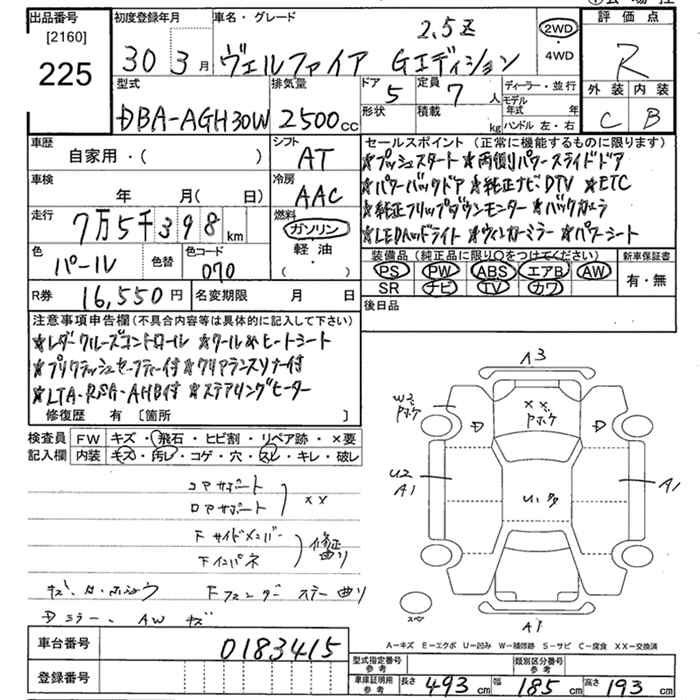 出品番号 初度登録年月 車名・グレード 評価点
[2160]
225
30 3月 ヴェルファイア 2.5Z Gエディション 2WD・4WD R
型式 排気量 ドア 定員 ディーラー・並行 外装 内装
DBA-AGH30W 2500cc 5 7人 モデル年式 年 C B
形状 積載 kg ハンドル 左・右
車歴 シフト セールスポイント(正常に機能するものに限ります)
自家用・( ) AT ★プッシュスタート ★両側パワースライドドア
車検 冷房 ★パワーバックドア ★純正ナビ、DTV ★ETC
年 月( 日) AAC ★純正フリップダウンモニター ★バックカメラ
走行 燃料 ★LEDヘッドライト ★ウィンカーミラー ★パワーシート
7万5千398km ガソリン
軽油
・( )
色 色替 色コード 装備品(純正品に限り○をつけてください) 新車保証書
パール 070 PS PW ABS エアB AW 有・無
SR ナビ TV カワ
R券 16,550円 名変期限 月 日 後日品
注意事項申告欄(不具合内容等は具体的に記入して下さい)
★レダークルーズコントロール ★クール&ヒートシート
★プリクラッシュセーフティー付 ★クリアランスソナー付
★LTA・RSA・AHB付 ★ステアリングヒーター
修復歴 有 [箇所 ]
検査員 FW キズ・飛石・ヒビ割・リペア跡・×要
記入欄 内装 キズ・汚レ・コゲ・穴・スレ・キレ・破レ
コアサポート
ロアサポート ××
Fサイドメンバー
Fインパネ 修正 曲り
Fフェンダーステー曲り
Dミラー、AWキズ
A3
W2 Pボケ
D ×× Pボケ D
U2 A1
U・多
A1
スペア
A1
A-キズ E-エクボ U-凹み W-補修跡 S-サビ C-腐食 XX-交換済
車台番号 0183415
登録番号
型式指定番号 参考 類別区分番号 参考
車庫証明用 参考 長さ 493cm 幅 185cm 高さ 193cm